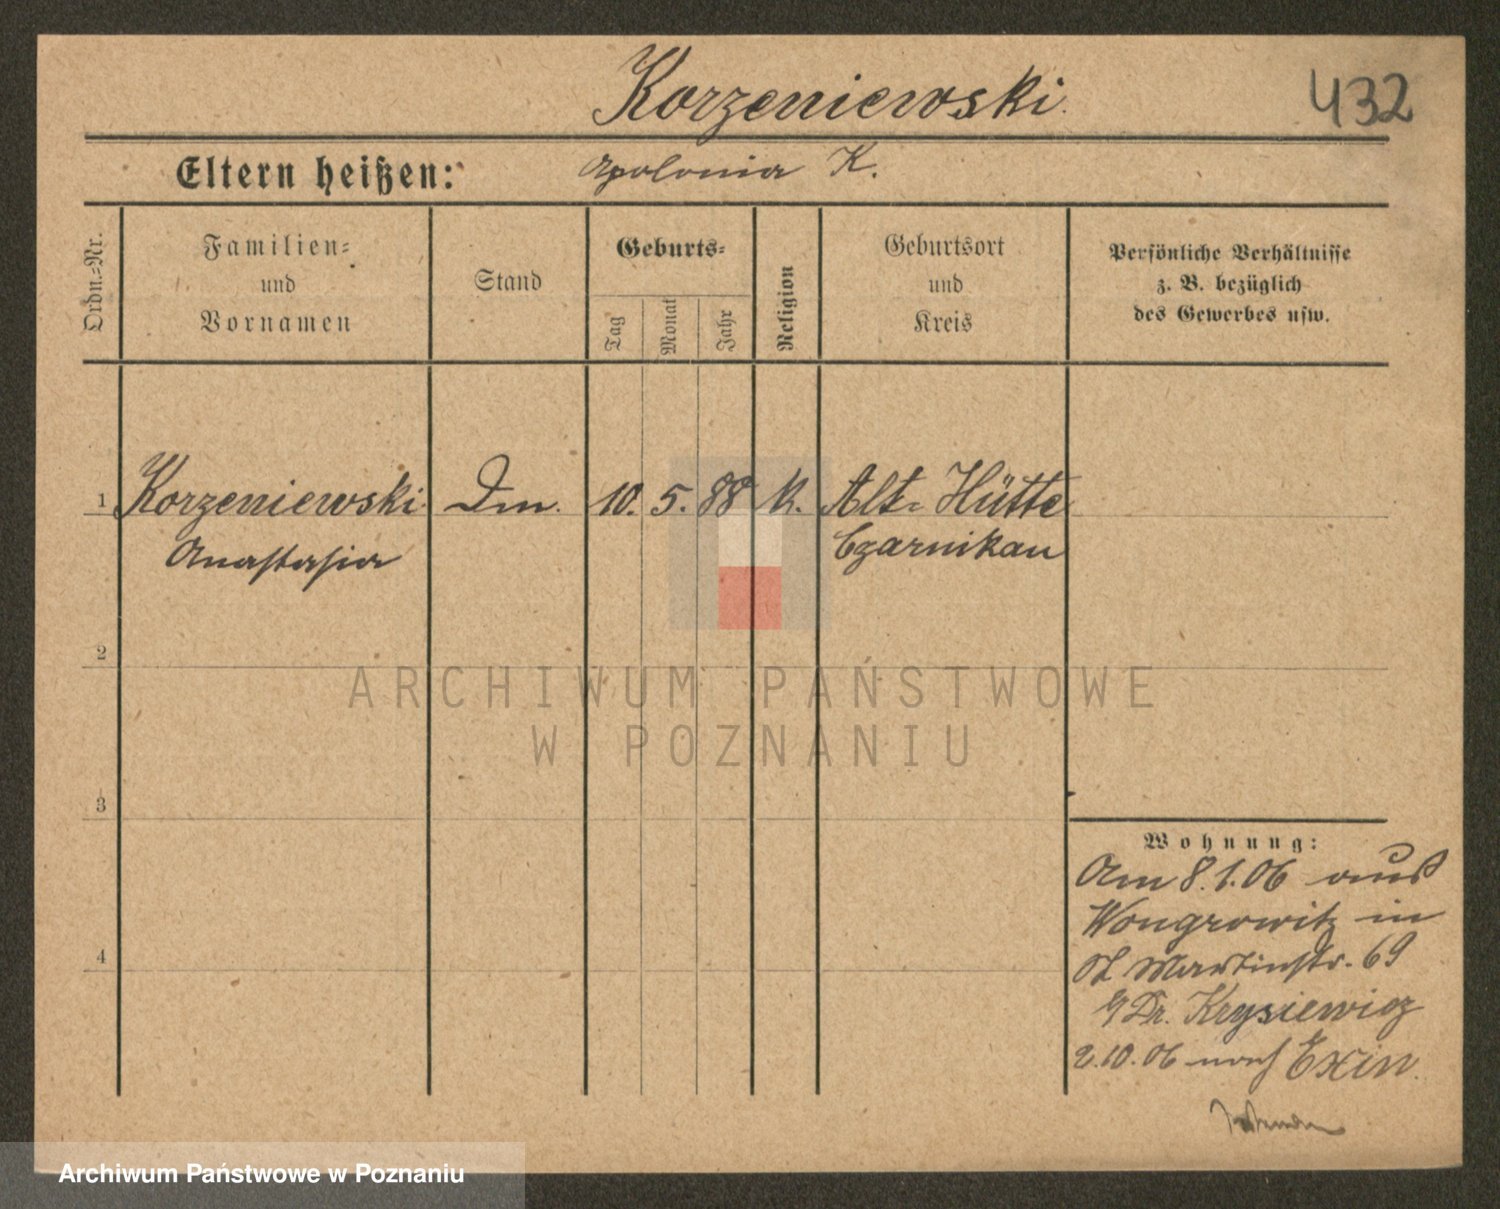 Korzeniewski.
432
Eltern heißen: Apolonia K.
Ordn.=Nr.
Familien=
und
Vornamen
Stand
Geburts=
Tag
Monat
Jahr
Religion
Geburtsort
und
Kreis
Persönliche Verhältnisse
z. B. bezüglich
des Gewerbes usw.
1 Korzeniewski Dm. 10. 5. 88 k. Alt-Hütte
Anastasia Czarnikau
2
ARCHIWUM PAŃSTWOWE
W POZNANIU
3
Wohnung:
Am 8.1.06 aus
Wongrowitz in
St. Martinstr. 69
Dr. Krysiewicz
2.10.06 nach Exin.
4
Archiwum Państwowe w Poznaniu